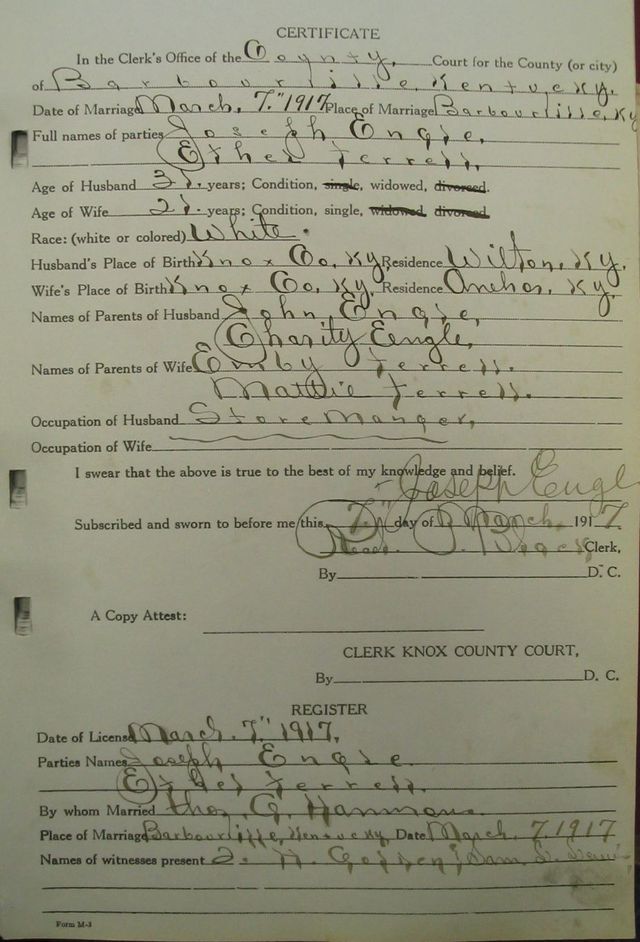 CERTIFICATE
In the Clerk's Office of the County, Court for the County (or city)
of Barbourville, Kentucky.
Date of Marriage March, 7." 1917 Place of Marriage Barbourville, Ky
Full names of parties Joseph Engle,
Ethel Terrell,
Age of Husband years; Condition, single, widowed, divorced.
Age of Wife 21. years; Condition, single, widowed divorced
Race: (white or colored) White.
Husband's Place of Birth Knox Co, Ky, Residence Wilton, Ky.
Wife's Place of Birth Knox Co, Ky, Residence Ky.
Names of Parents of Husband John Engle,
Charity Eengle,
Names of Parents of Wife Terrell.
Mattie Terrell.
Occupation of Husband Store Manger,
Occupation of Wife
I swear that the above is true to the best of my knowledge and belief.
Joseph Engl
Subscribed and sworn to before me this 7" day of March, 1917
Read. Clerk,
By D. C.
A Copy Attest:
CLERK KNOX COUNTY COURT,
By D. C.
REGISTER
Date of License March. 7." 1917,
Parties Names Joseph Engle.
Ethel Terrell.
By whom Married Thos. G. Hammons.
Place of Marriage Barbourville, Kentucky, Date March 7 1917
Names of witnesses present Sam
Form M-3